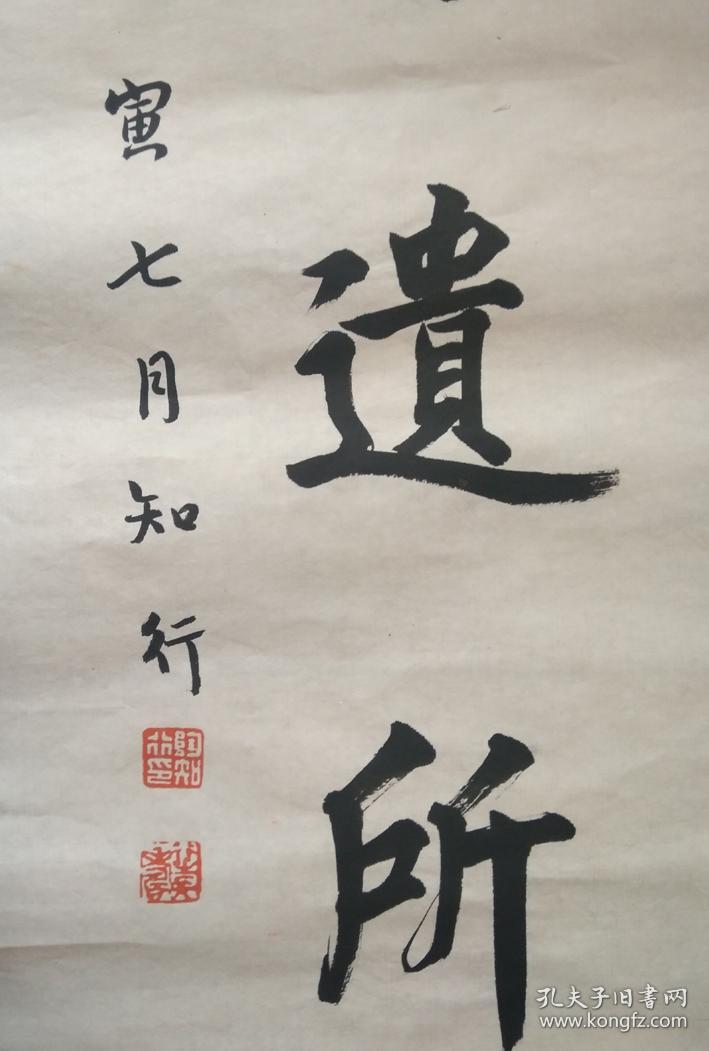 遺所
寅七月知行
陶知行印
孔夫子旧書网
www.kongfz.com